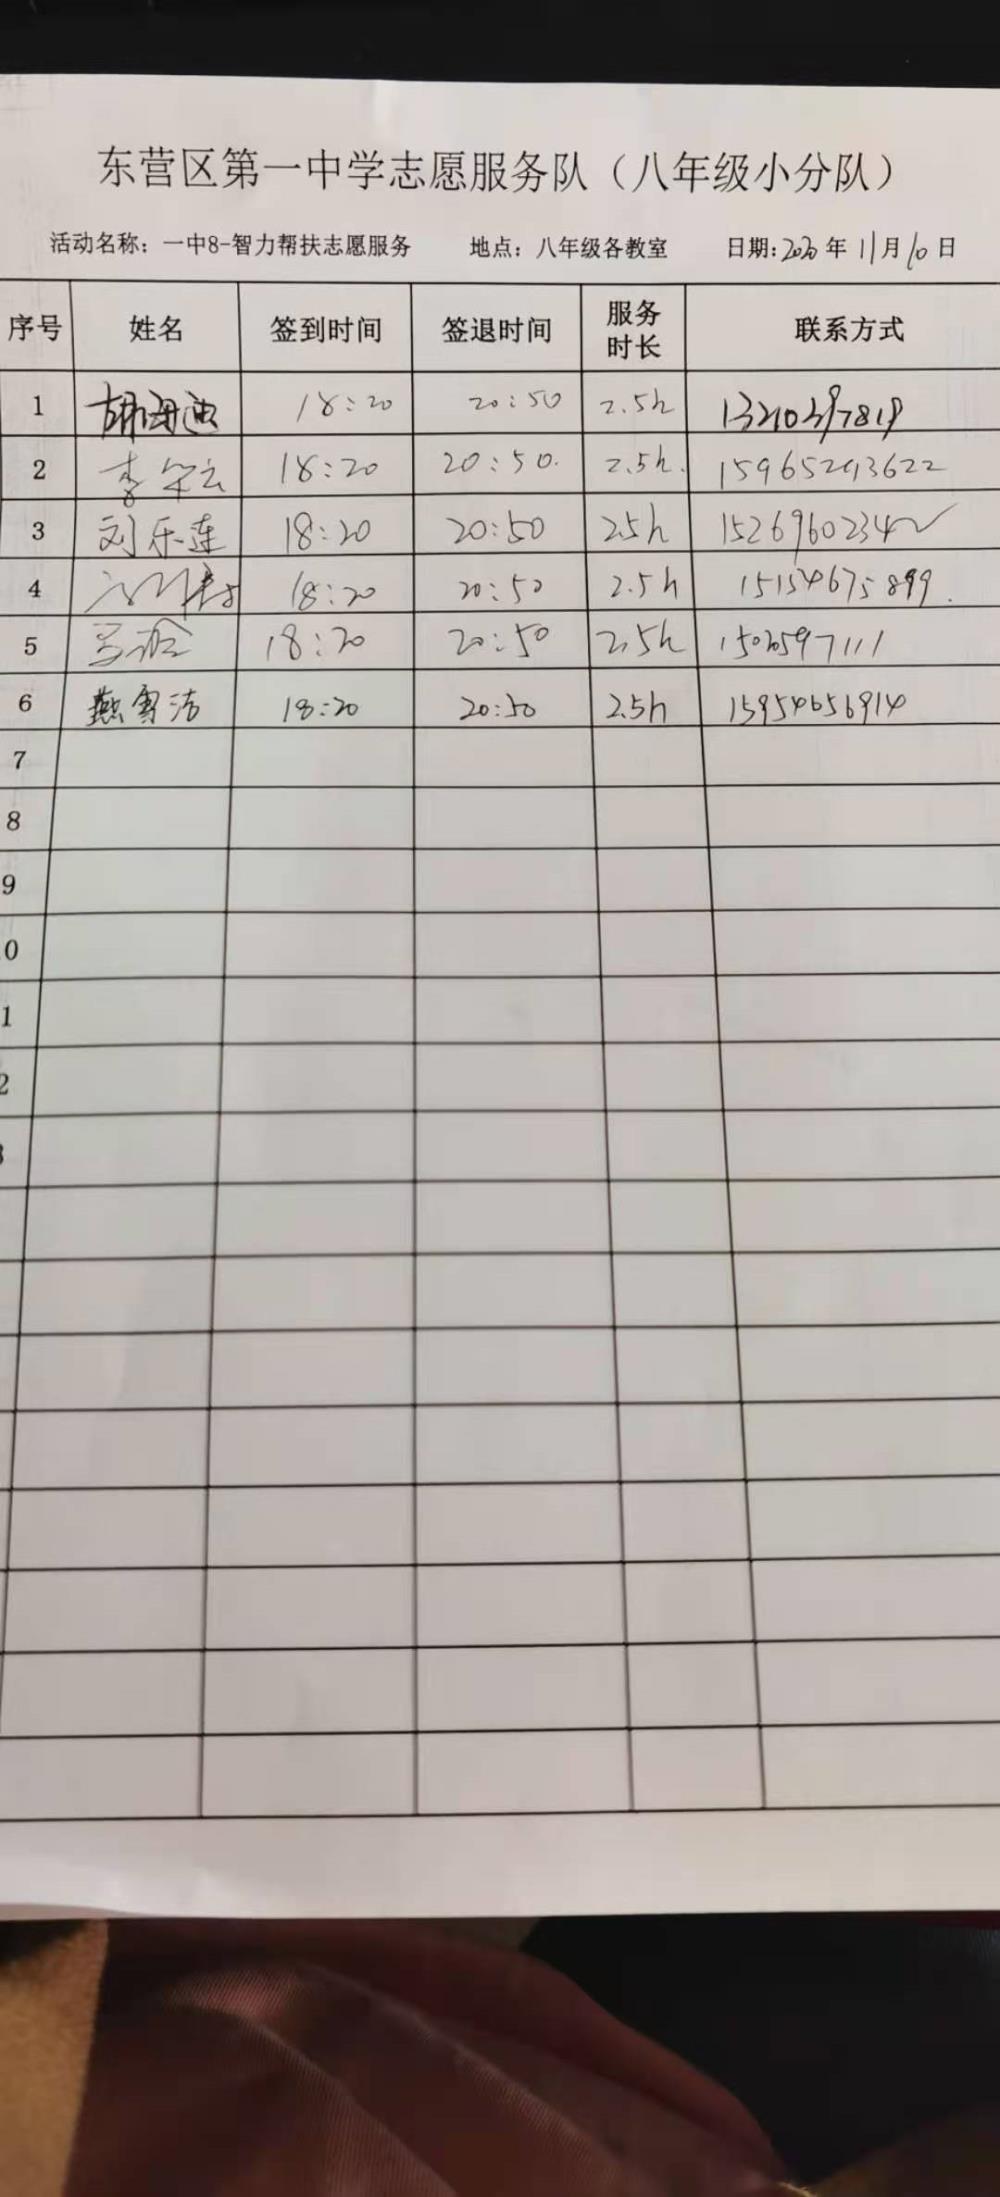 东营区第一中学志愿服务队（八年级小分队）
活动名称：一中8-智力帮扶志愿服务 地点：八年级各教室 日期：2020年11月10日
序号 姓名 签到时间 签退时间 服务时长 联系方式
1 胡海迪 18:20 20:50 2.5h
2 李 18:20 20:50. 2.5h. 15965293622
3 刘乐莲 18:20 20:50 2.5h
4 18:20 20:50 2.5h 15154675899.
5 18:20 20:50 2.5h
6 燕雪洁 18:20 20:50 2.5h 15954656914
7
8
9
0
1
2